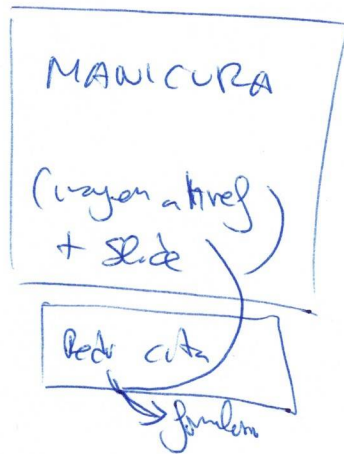 MANICURA
(imagen a href)
+ Slide
Pedir cita
formulario